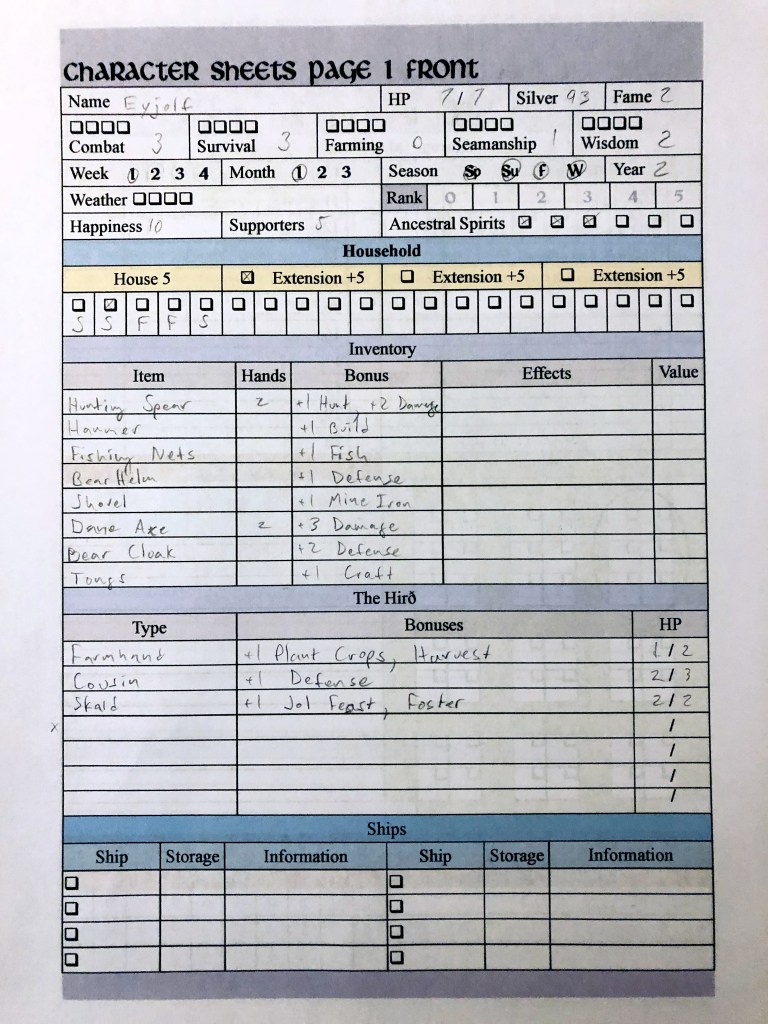 Character Sheets Page 1 Front
Name Eyjolf HP 7/7 Silver 93 Fame 2
Combat 3 Survival 3 Farming 0 Seamanship 1 Wisdom 2
Week 1 2 3 4 Month 1 2 3 Season Sp Su F W Year 2
Weather Rank 0 1 2 3 4 5
Happiness 10 Supporters 5 Ancestral Spirits
Household
House 5 Extension +5 Extension +5 Extension +5
S S F F S
Inventory
Item Hands Bonus Effects Value
Hunting Spear 2 +1 Hunt, +2 Damage
Hammer +1 Build
Fishing Nets +1 Fish
Bear Helm +1 Defense
Shovel +1 Mine Iron
Dane Axe 2 +3 Damage
Bear Cloak +2 Defense
Tongs +1 Craft
The Hirð
Type Bonuses HP
Farmhand +1 Plant Crops, Harvest 1/2
Cousin +1 Defense 2/3
Skald +1 Jol Feast, Foster 2/2
x /
/
/
/
Ships
Ship Storage Information Ship Storage Information